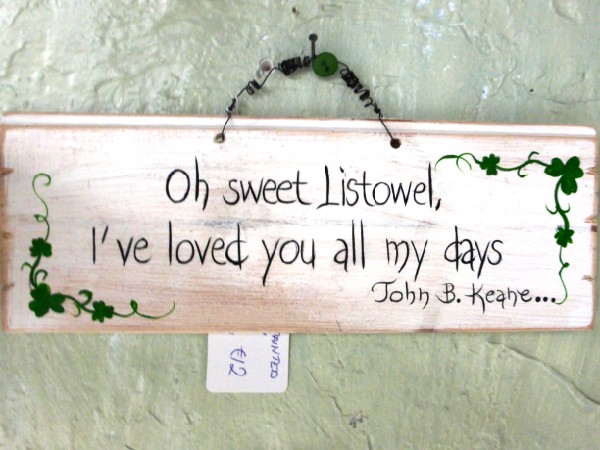 Oh sweet Listowel,
I've loved you all my days
John B. Keane...
€12